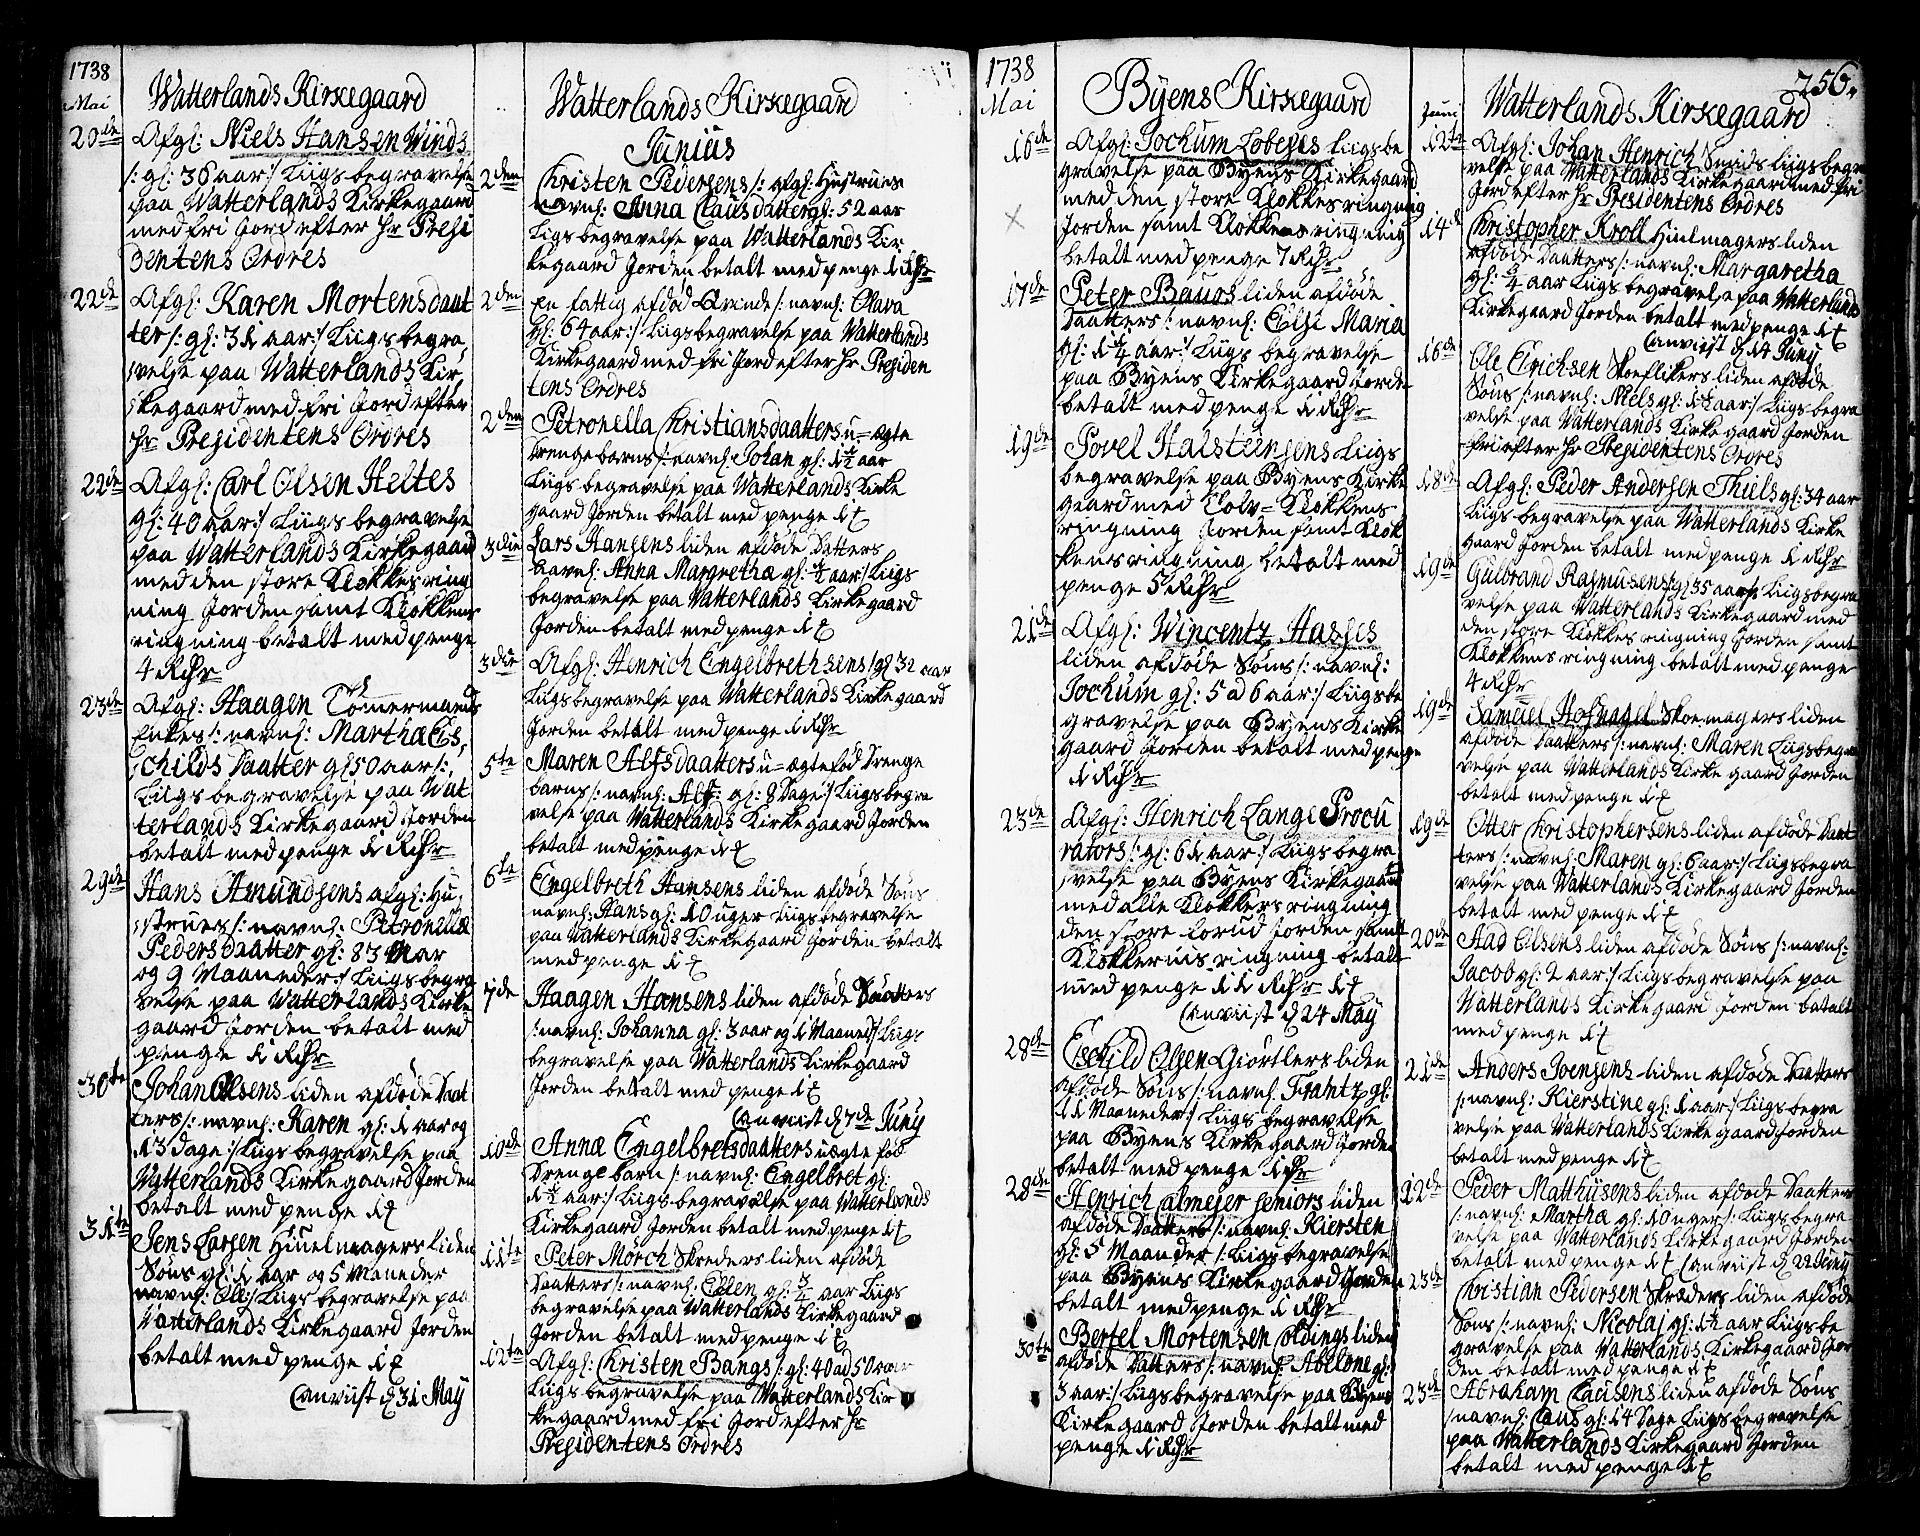 1738
Mai
Watterlands Kirkegaard
20de
Afgl: Niels Hansen Winds
/: gl: 36 aar :/ Liigs begravelse
paa Watterlands Kirkegaard
med fri Jord efter Hr Presi
dentens Ordres
22de
Afgl: Karen Mortensdaat
ter /: gl: 31 aar :/ Liigs begra
velse paa Watterlands Kir
kegaard med fri Jord efter
Hr Presidentens Ordres
22de
Afgl: Carl Olsen Heltes
gl: 40 aar :/ Liigs begravelse
paa Watterlands Kirkegaard
med den store Klokkes ring
ning Jorden samt Klokkens
ringning betalt med penge
4 Rdr
23de
Afgl: Haagen Tømermands
Enkes /: navnl: Martha Es
childs Daatter gl 50 aar /:
Liigs begravelse paa Wat
terlands Kirkegaard Jorden
betalt med penge 1 Rdr
29de
Hans Amundsens afgl: Hu
struis /: navnl: Petronella
Pedersdaatter gl: 83 Aar
og 9 Maaneder :/ Liigs begra
velse paa Watterlands Kirke
gaard Jorden betalt med
penge 1 Rdr
30te
Johan Olsens liden afdøde Daat
ters /: navnl: Karen gl: 1 aar og
13 Dage :/ Liigs begravelse paa
Watterlands Kirkegaard Jorden
betalt med penge 1 ƒ
31te
Jens Larsen Hiuelmagers liden
Søns gl: 1 aar og 5 Maneder
navnl: Ole :/ Liigs begravelse paa
Watterlands Kirkegaard Jorden
betalt med penge 1 ƒ
Canviist d 31 May
Watterlands Kirkegaard
Junius
2den
Christen Pedersens /: afgl: Hustrues
navnl: Anna Clausdatter gl: 52 aar
Ligs begravelse paa Watterlands Kir
kegaard Jorden betalt med penge 1 Rdr
2den
En fattig afdød Qvinde /: navnl: Olava
gl: 64 aar :/ Liigs begravelse paa Watterlands
Kirkegaard med fri Jord efter Hr Presiden
tens Ordres
2den
Petronella Christiansdaatters u=ægte
Drenge barns /: navnl: Johan gl: 1 ½ aar
Liigs begravelse paa Watterlands Kirke
gaard Jorden betalt med penge 1 ƒ
3die
Lars Hansens liden afdøde Datters
navnl: Anna Margretha gl: aar :/ Liigs
begravelse paa Watterlands Kirkegaard
Jorden betalt med penge 1 ƒ
3die
Afgl: Henrich Engelbrethsens /: gl 32 aar
Liigs begravelse paa Watterlands Kirkegaard
Jorden betalt med penge 1 Rdr
5te
Maren Alfsdaatters u=ægte fød Drenge
barns /: navnl: Alf: gl: 8 Dage :/ Liigs begra
velse paa Watterlands Kirkegaard Jorden
betalt med penge 1 ƒ
6te
Engelbreth Hansens liden afdøde Søns
navnl: Hans gl: 10 uger Liigs begravelse
paa Watterlands Kirkegaard Jorden betalt
med penge 1 ƒ
7de
Haagen Hansens liden afdøde Daatters
/: navnl: Johanna gl: 3 aar og 1 Maaned :/ Liigs
begravelse paa Watterlands Kirkegaard
Jorden betalt med penge 1 ƒ
Canviist d 7de Juny
10de
Anna Engelbretsdaatters uægte fød
Drenge barn /: navnl: Engelbret gl:
1 ½ aar :/ Liigs begravelse paa Watterlands
Kirkegaard Jorden betalt med penge 1 ƒ
11te
Peter Mörch Skreders liden afdøde
Daatters /: navnl: Ellen gl: aar Liigs
begravelse paa Watterlands Kirkegaard
Jorden betalt med penge 1 ƒ
12te
Afgl: Christen Bangs /: gl: 40 ad 50 aar
Liigs begravelse paa Watterlands Kir
kegaard med fri Jord efter Hr
Presidentens Ordres
1738
Mai
Byens Kirkegaard
16de
Afgl: Jochum Lobeses Liigs be
gravelse paa Byens Kirkegaard
med den store Klokkes ringning
Jorden samt Klokkens ringning
betalt med penge 7 Rdr
17de
Peter Bauers liden afdøde
Daatters /: navnl: Elsi Maria
gl: 1 ¼ aar :/ Liigs begravelse
paa Byens Kirkegaard Jorden
betalt med penge 1 Rdr
19de
Povel Halsteensens Liigs
begravelse paa Byens Kirke
gaard med Tolv=Klokkens
ringning Jorden samt Klok
kens ringning betalt med
penge 5 Rdr
21de
Afgl: Wincentz Hasses
liden afdøde Søns /: navnl:
Jochum gl: 5 ad 6 aar :/ Liigs be
gravelse paa Byens Kirke
gaard Jorden betalt med penge
1 Rdr
23de
Afgl: Henrich Lange Procu
rators /: gl: 61 aar :/ Liigs begra
velse paa Byens Kirkegaard
med alle Klokkers ringning
den store forud Jorden samt
Klokkernis ringning betalt
med penge 11 Rdr 1 ƒ
Canviist d 24 May
28de
Eschild Olsen Giørtlers liden
afdøde Søns /: navnl: Frantz gl:
11 Maaneder :/ Liigs begravelse
paa Byens Kirkegaard Jorden
betalt med penge 1 Rdr
28de
Henrich Calmejer Seniors liden
afdøde Daatters /: navnl: Kiersten
gl: 5 Maander /: Liigs begravelse
paa Byens Kirkegaard Jorden
betalt med penge 1 Rdr
30te
Bertel Mortensen Coldings liden
afdøde Datters /: navnl: Abelone gl:
3 aar :/ Liigs begravelse paa Byens
Kirkegaard Jorden betalt med
penge 1 Rdr
256.
Juni
Watterlands Kirkegaard
12te
Afgl: Johan Henrich Smids Liigs begra
velse paa Watterlands Kirkegaard med fri
Jord efter Hr Presidentens Ordres
14de
Christopher Kroll Hiulmagers liden
afdøde Daatters /: navnl: Margaretha
gl: ¼ aar Liigs begravelse paa Watterlands
Kirkegaard Jorden betalt med penge 1 ƒ
Canviist d 14 Juny
16de
Ole Erichsen Skoeflikers liden afdøde
Søns /: navnl: Niels gl: 1 ½ aar :/ Liigs begra
velse paa Watterlands Kirkegaard Jorden
fri efter Hr Presidentens Ordres
18de
Afgl: Peder Andersen Thuls gl: 34 aar
Liigs begravelse paa Watterlands Kirke
gaard Jorden betalt med penge 1 Rdr
19de
Gulbrand Rasmusens /: gl 35 aar :/ Liigs begra
velse paa Watterlands Kirkegaard med
den store Klokkes ringning Jorden samt
Klokkens ringning betalt med penge
4 Rdr
19de
Samuel Hofnagel Skoemagers liden
afdøde Daatters /: navnl: Maren Liigs begra
velse paa Watterlands Kirkegaard Jorden
betalt med penge 1 ƒ
19de
Otter Christophersens liden afdøde Daat
ters /: navnl: Maren gl: 6 aar :/ Liigs begra
velse paa Watterlands Kirkegaard Jorden
betalt med penge 1 ƒ
20de
Aad Olsens liden afdøde Søns /: navnl:
Jacob gl: 2 aar :/ Liigs begravelse paa
Watterlands Kirkegaard Jorden betalt
med penge 1 ƒ
21de
Anders Joensens liden afdøde Daatters
/: navnl: Kierstine gl: 1 aar :/ Liigs begra
velse paa Watterlands Kirkegaard Jorden
betalt med penge 1 ƒ
22de
Peder Matthisens liden afdøde Daatters
/: navnl: Martha gl: 10 uger /: Liigs begra
velse paa Watterlands Kirkegaard Jorden
betalt med penge 1 ƒ Canviist d 22 Juny
23de
Christian Pedersen Skræders liden afdøde
Søns /: navnl: Nicolaj gl: 1 ½ aar Liigs be
gravelse paa Watterlands Kirkegaard Jor
den betalt med penge 1 ƒ
23de
Abraham Clausens liden afdøde Søns
/: navnl: Claus gl: 14 Dage Liigs begravelse
paa Watterlands Kirkegaard Jorden
betalt med penge 1 ƒ